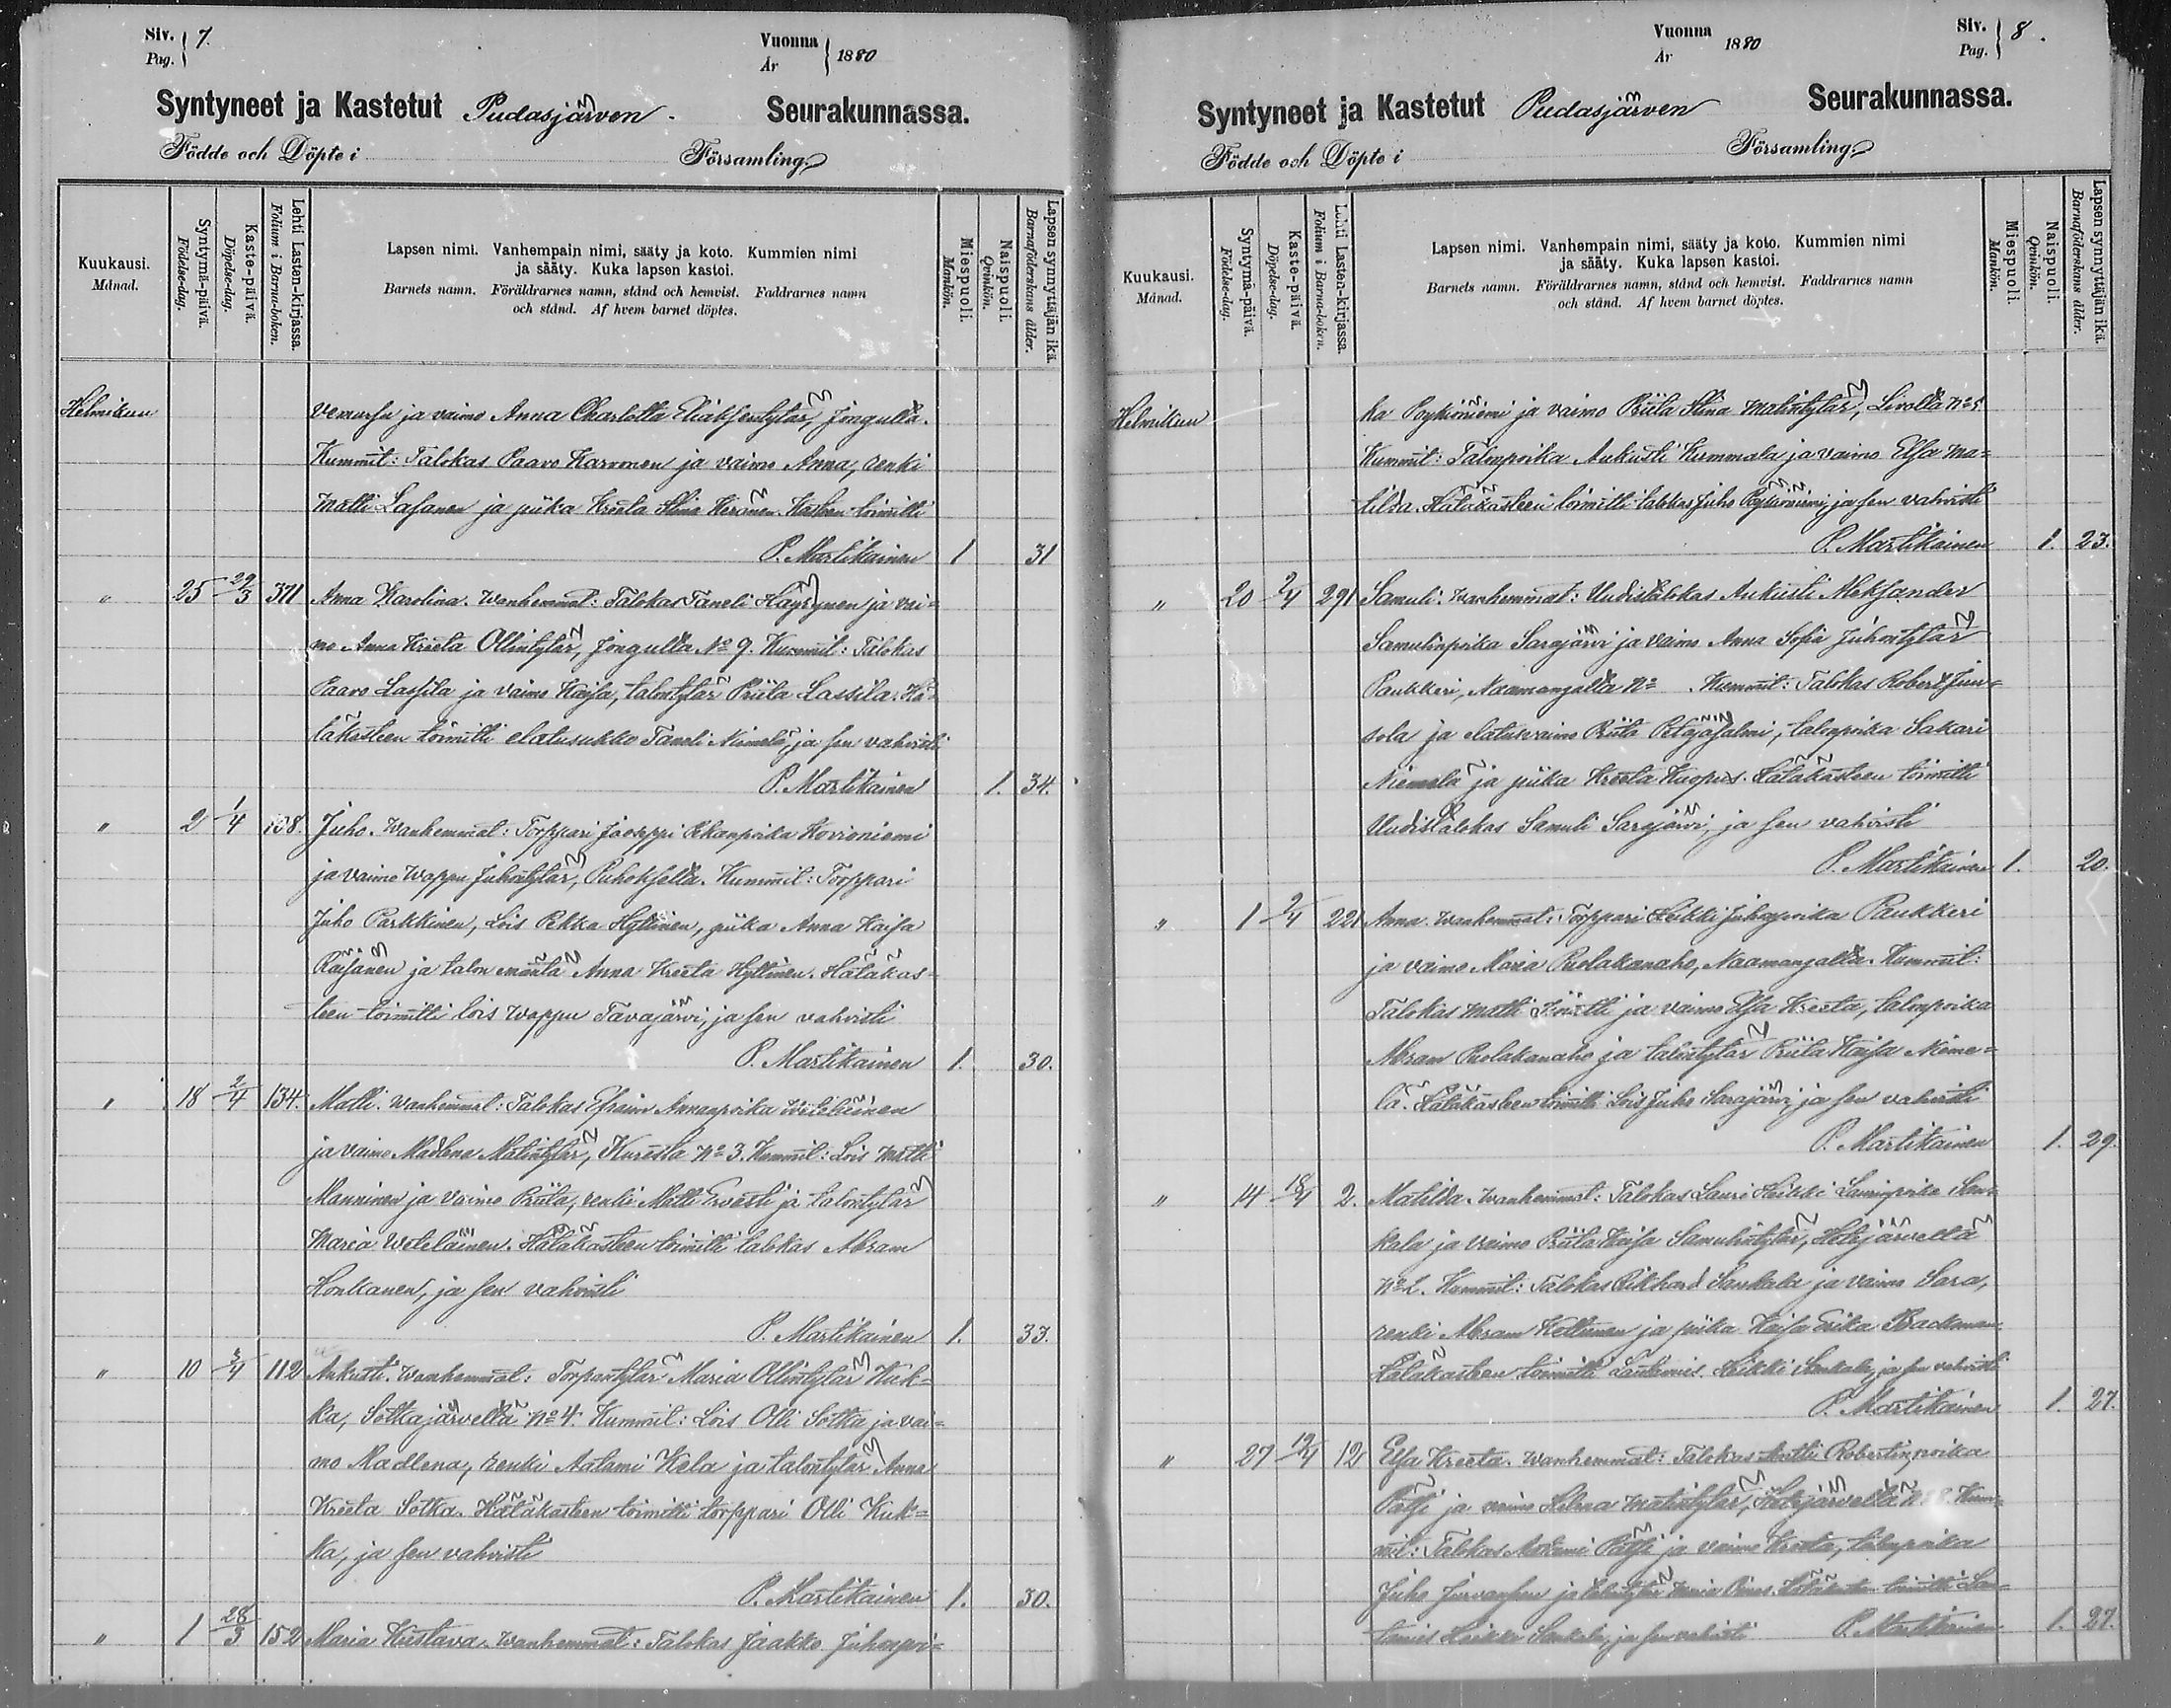 Siv. Pag. 7.
Vuonna År 1880
Syntyneet ja Kastetut Pudasjärven Seurakunnassa.
Födde och Döpte i Församling
Kuukausi. Månad.
Syntymä-päivä. Födelse-dag.
Kaste-päivä. Döpelse-dag.
Lehti Lasten-kirjassa. Folium i Barna-boken.
Lapsen nimi. Vanhempain nimi, sääty ja koto. Kummien nimi
ja sääty. Kuka lapsen kastoi.
Barnets namn. Föräldrarnes namn, stånd och hemvist. Faddrarnes namn
och stånd. Af hvem barnet döptes.
Miespuoli. Mankön.
Naispuoli. Qvinkön.
Lapsen synnyttäjän ikä. Barnaföderskans ålder.
Helmikuu ja vaimo Anna Charlotta Jongulla.
Kummit: Talokas Paavo Karvonen ja vaimo Anna, renki
Matti Lasanen ja piika Kreeta Stina Keränen. Kasteen toimitti
P. Martikainen 1 31
" 25 29/3 371 Anna Karolina. Wanhemmat: Talokas Taneli Häyrynen ja vai=
mo Anna Kreeta Ollintytär, Jongulla No 9. Kummit: Talokas
Paavo Lassila ja vaimo Kaisa, talontytär Priita Lassila. Hä=
täkasteen toimitti elatusukko Taneli Niemelä, ja sen vahvisti
P. Martikainen 1. 34.
" 2 1/4 108. Juho. Wanhemmat: Torppari Jaoppi Pekanpoika Kovioniemi
ja vaimo Wappu Juhontytär, Puhoksella. Kummit: Torppari
Juho Parkkinen, Lois Pekka Hyttinen, piika Anna Kaisa
Räisänen ja talon emäntä Anna Kreeta Hyttinen. Hätäkas=
teen toimitti lois Wappu Tavajärvi, ja sen vahvisti
P. Martikainen 1. 30.
" 18 2/4 134. Matti. Wanhemmat: Talokas Efraim Annanpoika
ja vaimo Madlena Matintytär, No 3. Kummit: Lois Matti
Manninen ja vaimo Priita, renki Matti ja talontytär
Maria Hätäkasteen toimitti talokas Abram
Honkanen, ja sen vahvisti
P. Martikainen 1. 33.
" 10 3/4 112 Aukusti. Wanhemmat: Torpantytär Maria Ollintytär Kuk=
ka, Sotkajärvellä No 4. Kummit: Lois Olli Sotka ja vai=
mo Madlena, renki Aatami Kela ja talontytär Anna
Kreeta Sotka. Hätäkasteen toimitti torppari Olli Kuk=
ka, ja sen vahvisti
P. Martikainen 1. 30.
" 1 28/3 152 Maria Kustava. Wanhemmat: Talokas Jaakko Juhonpoi=
Vuonna År 1880
Siv. Pag. 8.
Syntyneet ja Kastetut Pudasjärven Seurakunnassa.
Födde och Döpte i Församling
Kuukausi. Månad.
Syntymä-päivä. Födelse-dag.
Kaste-päivä. Döpelse-dag.
Lehti Lasten-kirjassa. Folium i Barna-boken.
Lapsen nimi. Vanhempain nimi, sääty ja koto. Kummien nimi
ja sääty. Kuka lapsen kastoi.
Barnets namn. Föräldrarnes namn, stånd och hemvist. Faddrarnes namn
och stånd. Af hvem barnet döptes.
Miespuoli. Mankön.
Naispuoli. Qvinkön.
Lapsen synnyttäjän ikä. Barnaföderskans ålder.
Helmikuu ka Poykiöniemi ja vaimo Priita Stina Matintytär, Livolla No 5
Kummit: Talonpoika Aukusti Kummala ja vaimo Elsa Ma=
tilda. Hätäkasteen toimitti talokas Juho Poykiöniemi, ja sen vahvisti
P. Martikainen 1. 23.
" 20 2/4 291 Samuli. Wanhemmat: Uudistalokas Aukusti Aleksander
Samulinpoika Sarajärvi ja vaimo Anna Sofia Juhontytär
Paukkeri, Naamangalla No Kummit: Talokas Robert Juu=
sola ja elatusvaimo Priita Petäjäsalmi, talonpoika Sakari
Niemelä ja piika Kreeta Kuopus. Hätäkasteen toimitti
Uudistalokas Samuli Sarajärvi, ja sen vahvisti
P. Martikainen 1. 20.
" 1 2/4 221 Anna. Wanhemmat: Torppari Heikki Juhonpoika Paukkeri
ja vaimo Maria Puolakanaho, Naamangalla. Kummit:
Talokas Matti ja vaimo Elsa Kreeta, talonpoika
Abram Puolakanaho ja talontytär Priita Kaisa Nieme=
lä. Hätäkasteen toimitti Lois Juho Sarajärvi, ja sen vahvisti
P. Martikainen 1. 29.
" 14 18/4 2. Matilda. Wanhemmat: Talokas Lauri Heikki Laurinpoika Sau=
kala ja vaimo Priita Kaisa Samulintytär, Hetejärvellä
No 2. Kummit: Talokas Rikhard Saukala ja vaimo Sara,
renki Abram Keltunen ja piika Kaisa Erika Backman.
Hätäkasteen toimitti Lautamies Heikki Saukala, ja sen vahvisti
P. Martikainen 1. 27.
" 27 19/4 12 Elsa Kreeta. Wanhemmat: Talokas Antti Robertinpoika
Pätsi ja vaimo Helena Matintytär, Hetejärvellä No 8. Kum=
mit: Talokas Aatami Pätsi ja vaimo Kreeta, talonpoika
Juho ja talontytär Maria Hätäkasteen toimitti Lau=
tamies Heikki Saukala, ja sen vahvisti P. Martikainen 1. 27.